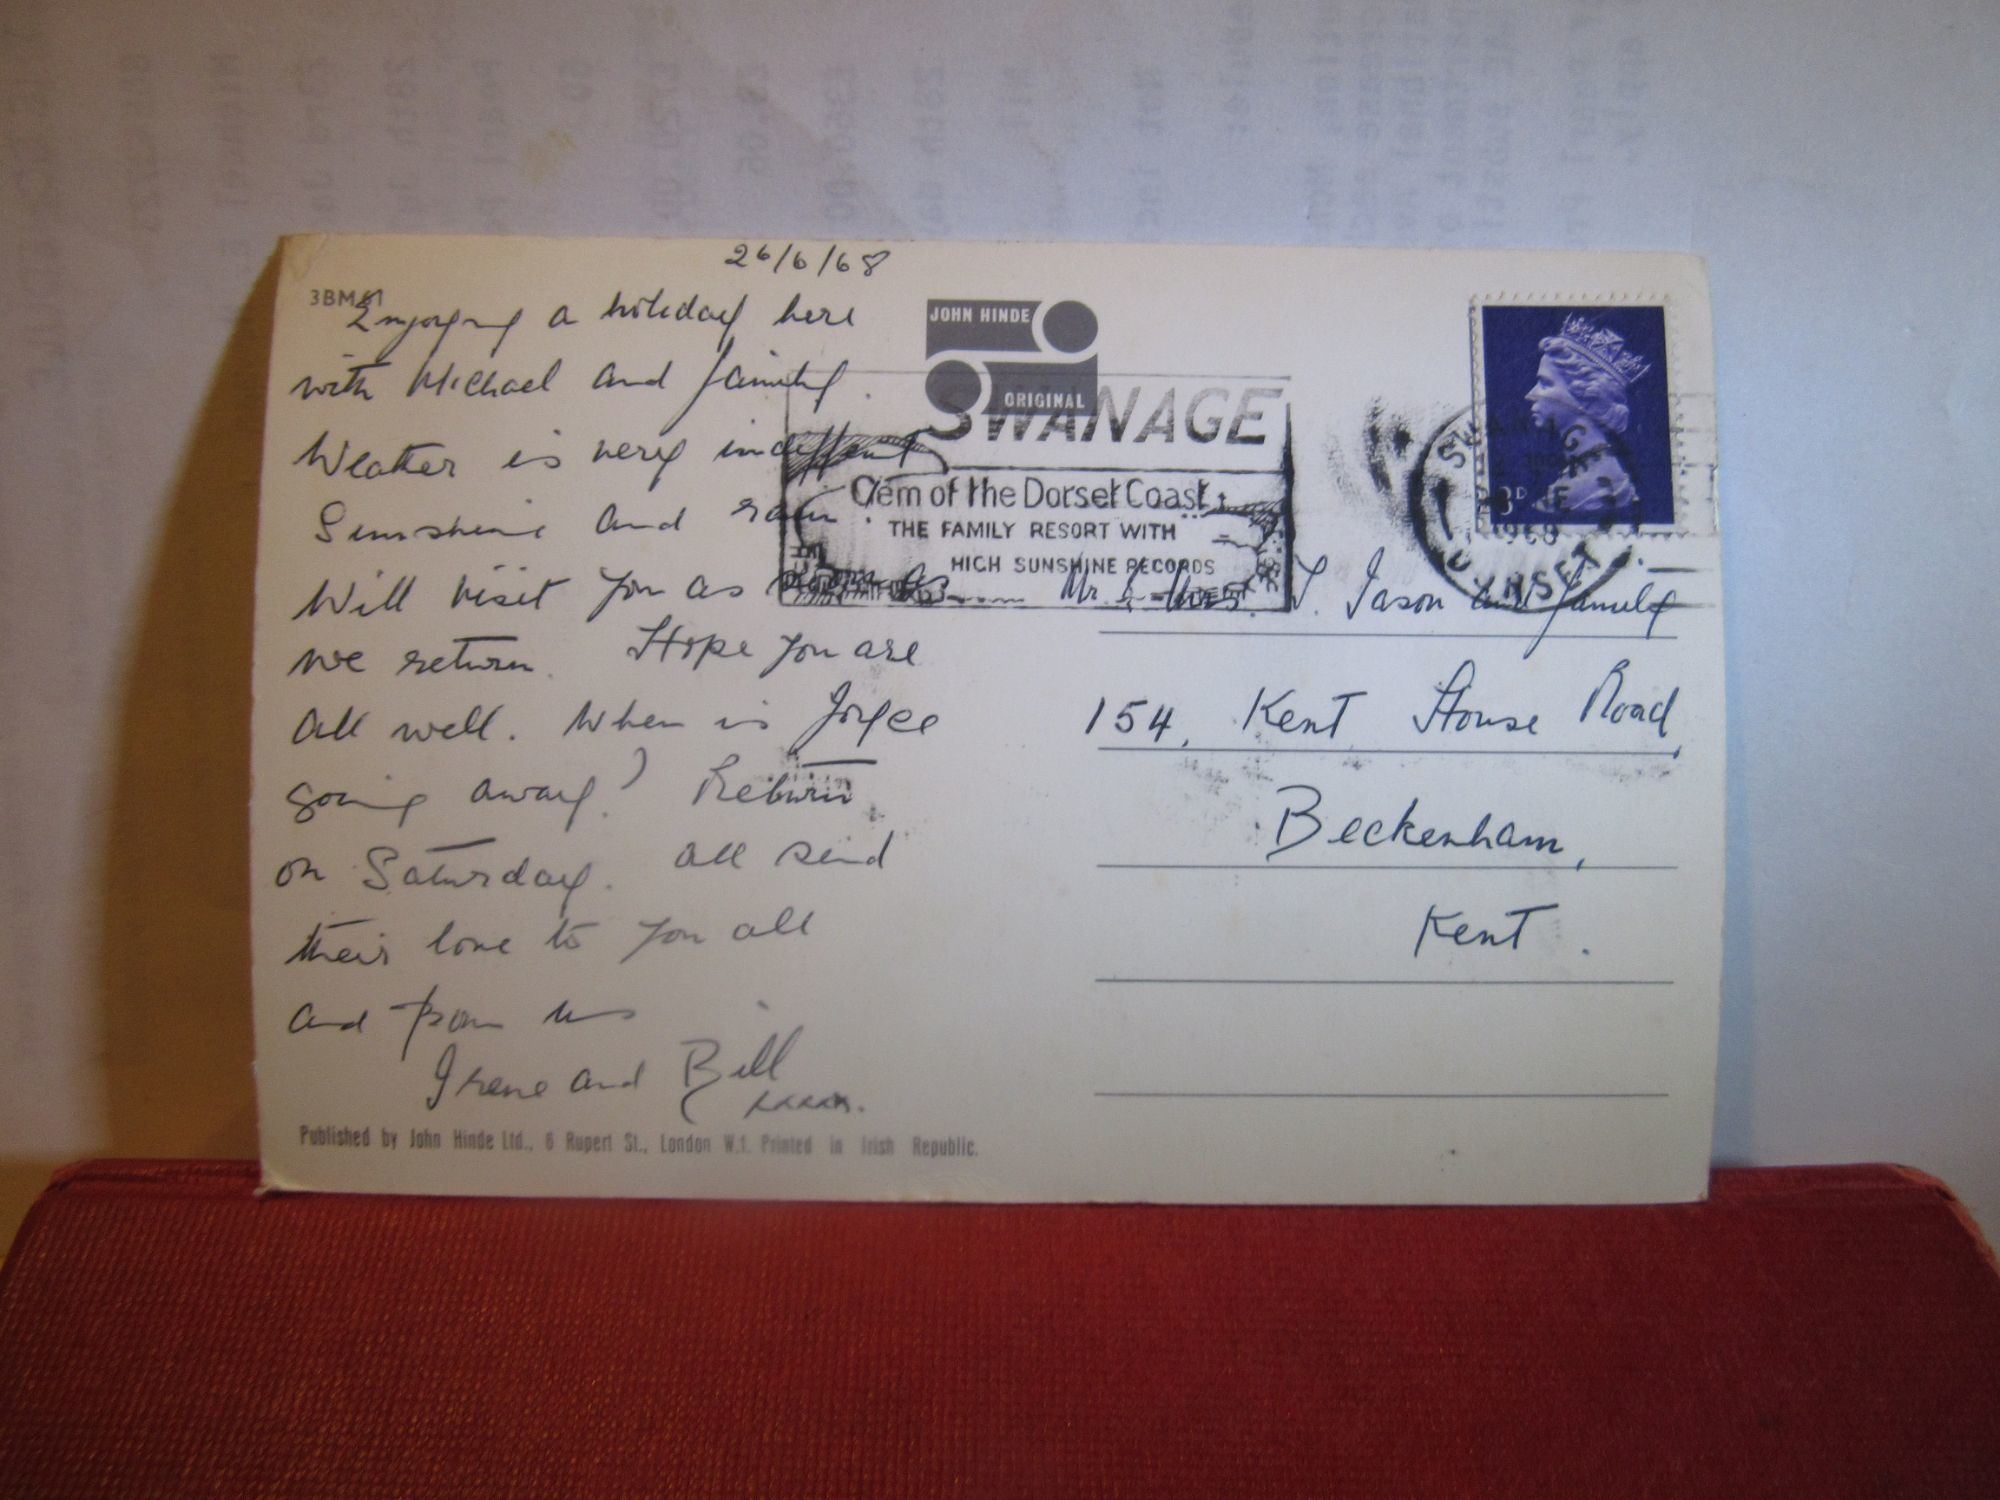 26/6/68
3BM61
Enjoying a holiday here
with Michael and family.
Weather is very indifferent
Sunshine and rain.
Will visit you as soon as
we return. Hope you are
all well. When is Joyce
going away? Return
on Saturday. All send
their love to you all
and from us
Irene and Bill
xxxxx.
Published by John Hinde Ltd., 6 Rupert St., London W.1. Printed in Irish Republic.
JOHN HINDE
ORIGINAL
SWANAGE
Gem of the Dorset Coast
THE FAMILY RESORT WITH
HIGH SUNSHINE RECORDS
SWANAGE
1968
DORSET
Mr. & Mrs. T. Jason and family
154, Kent House Road,
Beckenham,
Kent.